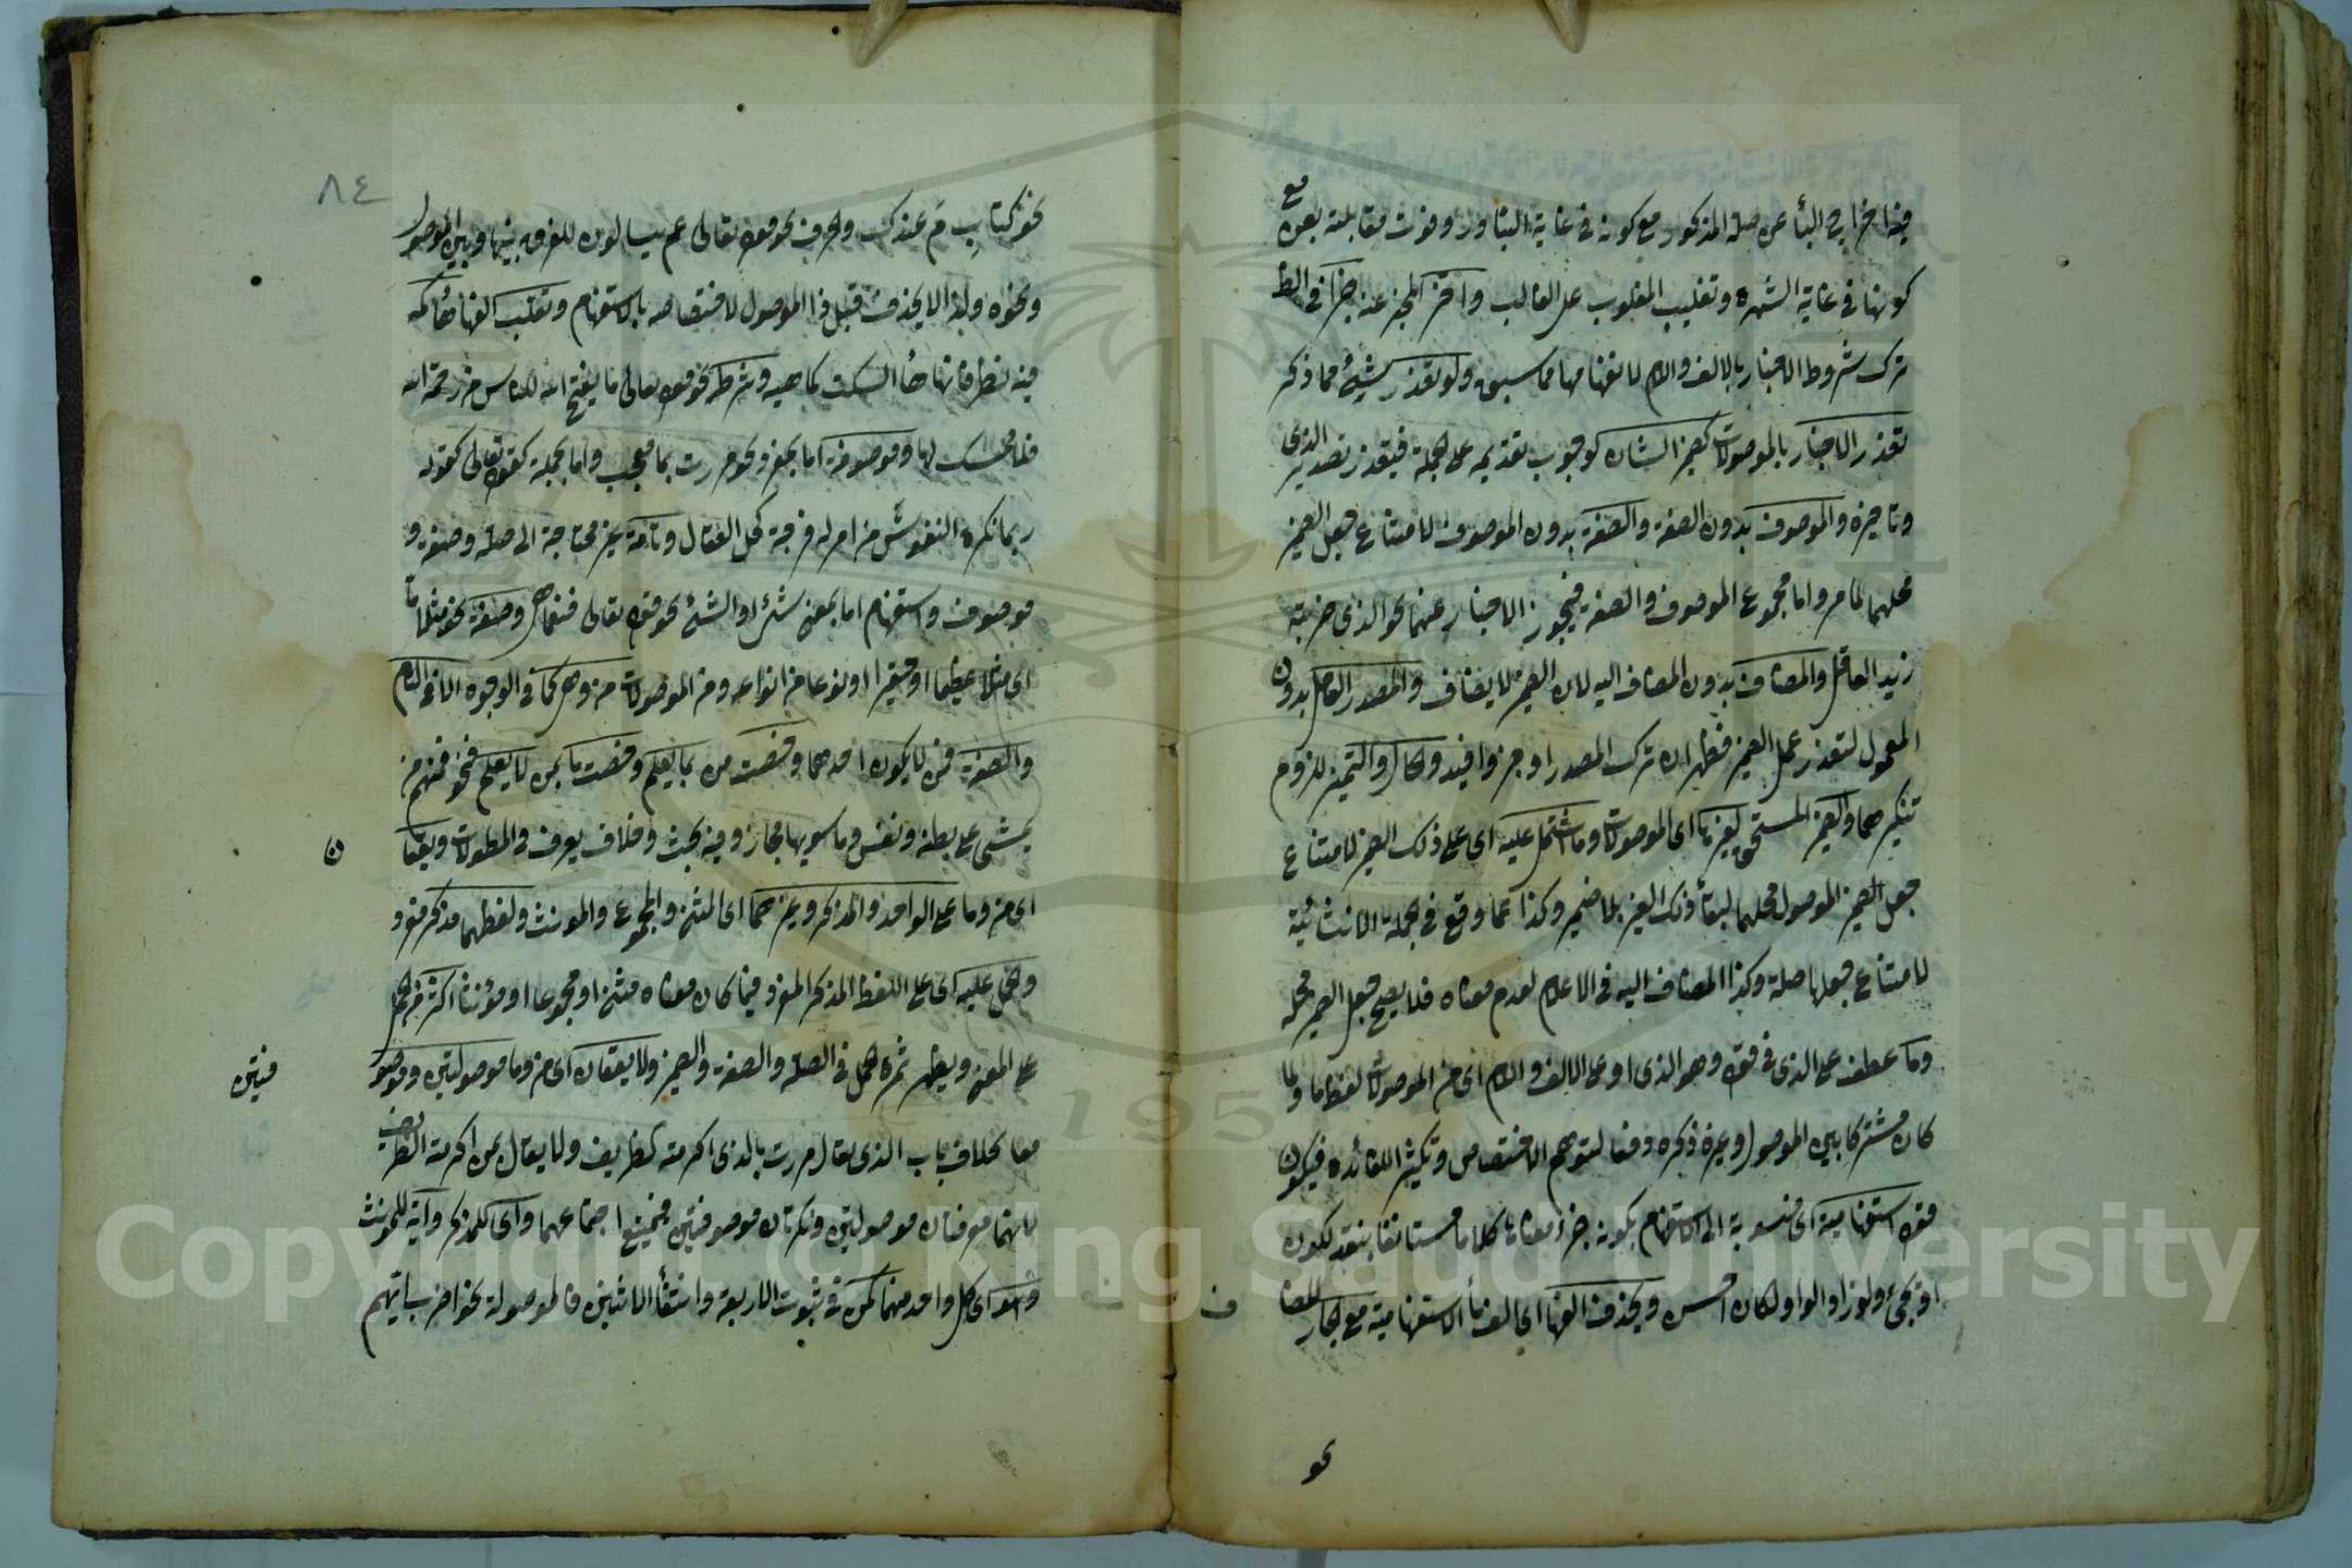 فيه اخراج الباء عن صلة المذكور مع كونه في غاية التبادر وفوت مقابلة بعن مع
كونها في غاية الشهرة وتغليب المغلوب على الغالب واخر المخبر عنه خبرا في
ترك شروط الاخبار بالالف واللام لانفهامها مما سبق ولو تعذر شيئ مما ذكر
تعذر الاخبار بالموصولات كضمير الشان لوجوب تقديمه على الجملة فيتعذر تصدير الذي
وتاخيره والموصوف بدون الصفة والصفة بدون الموصوف لامتناع جعل الضمير
محلهما لما مر واما مجموع الموصوف والصفة فيجوز الاخبار عنهما نحو الذي ضربته
زيد العاقل والمضاف بدون المضاف اليه لان الضمير لا يضاف والمصدر العامل بدون
المعمول لتعذر عمل الضمير فظهر ان ترك المصدر اوجز وافيد والحال والتميز للزوم
تنكيرهما والضمير المستحق لغيرها اى الموصولات وما اشتمل عليه اى على ذلك الضمير لامتناع
جعل الضمير الموصول محلهما لبقاء ذلك الغير بلا ضمير وكذا عما وقع في الجملة الانشائية
لامتناع جعلها صلة وكذا المضاف اليه في الاعلام لعدم معناه فلا يصح جعل الضمير محله
وما عطف على الذي في قوله وهو الذي او على الالف واللام اى من الموصولات لفظ ما ولما
كان مشتركا بين الموصول وغيره ذكره دفعا لتوهم الاختصاص وتكثيرا للفائدة فيكون
قوله استفهامية اى منسوبة الى الاستفهام بكونه جزء معناها كلاما مستانفا بتقدير تكون
او تجئ ولو زاد الواو لكان احسن ويحذف الفها اى الف ما الاستفهامية مع الجار للمضاف
نحو
٨٤
نحو كتاب مَ عندك والحرف نحو قوله تعالى عم يتساءلون للفرق بينها وبين الموصول
ونحوه ولذا لا يحذف قبل ذا الموصول لاختصاصه بالاستفهام وتقلب الفها هاء كمه
فيه نظر فانها هاء السكت كما هيه وشرط نحو قوله تعالى ما يفتح الله للناس من رحمة الله
فلا ممسك لها وموصوفة اما بمفرد نحو مررت بما معجب واما بجملة كقوله تعالى كقوله
ربما تكره النفوس من امر له فرجة كحل العقال وتامة غير محتاجة الى صلة وصفة و
موصوف واستفهام اما بمعنى شئ او الشئ نحو قوله تعالى فنعما هى وصفة نحو مثلا ما
اى مثلا عظيما او حقيرا او نوعا من انواعه ومن الموصولات من وهى كما في الوجوه الا في التام
والصفة فمن لا يكون احدهما وخصت من بما يعلم وخصت ما بمن لا يعلم نحو فمنهم من
يمشى على بطنه ونفس وما سويها مجاز وفيه بحث وخلاف يعرف في المطولات ويقعان
اى من وما على الواحد والمذكر وغيرهما اى المثنى والمجموع والمونث ولفظهما مذكر مفرد
والحمل عليه اى على اللفظ المذكر المفرد فيما كان معناه مثنى او مجموعا او مؤنثا اكثر من الحمل
على المعنى ويظهر ثمرة الحمل في الصلة والصفة والضمير ولا يقعان اى من وما موصولتين وموصو
فتين
معا بخلاف باب الذي يقال مررت بالذي اكرمته الظريف ولا يقال بمن اكرمته الظريف
لانهما معرفتان موصولتين ونكرتان موصوفتين فيمتنع اجتماعهما واى للمذكر واية للمونث
وهو اى كل واحد منهما كمن في ثبوت الاربعة وانتفاء الاثنين فالموصولة نحو اضرب ايهم